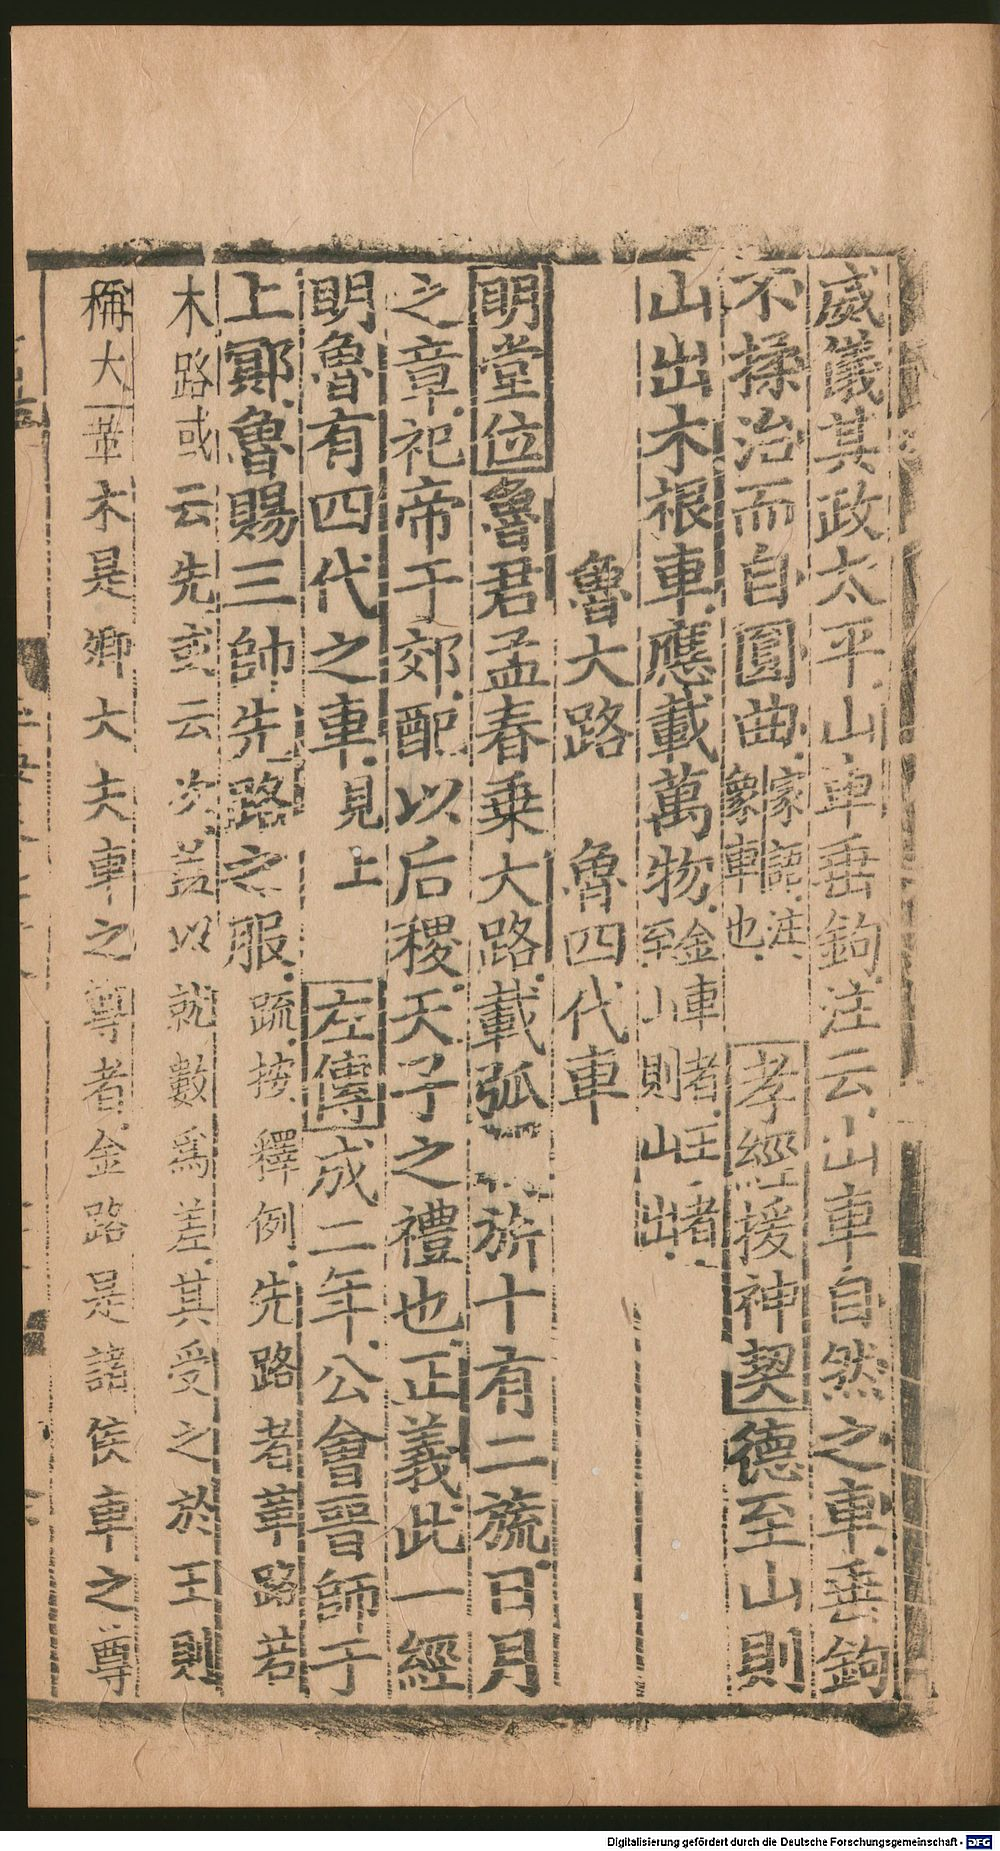 威儀其政太平山車垂鉤注云山車自然之車垂鉤
不揉治而自圓曲家語注象車也孝經援神契德至山則
山出木根車應載萬物金車王者至山則山出
魯大路 魯四代車
明堂位魯君孟春乗大路載弧旂十有二旒日月
之章祀帝于郊配以后稷天子之禮也正義此一經
明魯有四代之車見上 左傳成二年公會晉師于
上鄍魯賜三帥先路之服疏按釋例先路者革路若
木路或云先或云次蓋以就數爲差其受之於王則
稱大革木是卿大夫車之尊者金路是諸侯車之尊
Digitalisierung gefördert durch die Deutsche Forschungsgemeinschaft - DFG